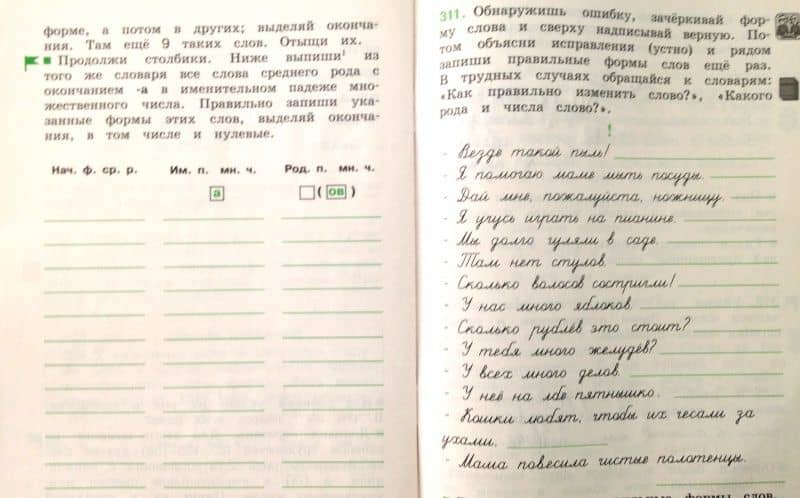 форме, а потом в других; выделяй оконча-
ния. Там ещё 9 таких слов. Отыщи их.
Продолжи столбики. Ниже выпиши¹ из
того же словаря все слова среднего рода с
окончанием -а в именительном падеже мно-
жественного числа. Правильно запиши ука-
занные формы этих слов, выделяй оконча-
ния, в том числе и нулевые.
Нач. ф. ср. р. Им. п. мн. ч. Род. п. мн. ч.
а (ов)
311. Обнаружишь ошибку, зачёркивай фор-
му слова и сверху надписывай верную. По-
том объясни исправления (устно) и рядом
запиши правильные формы слов ещё раз.
В трудных случаях обращайся к словарям:
«Как правильно изменить слово?», «Какого
рода и числа слово?».
!
- Везде такой пыль!
- Я помогаю маме мыть посуды.
- Дай мне, пожалуйста, ножницу.
- Я учусь играть на пианине.
- Мы долго гуляли в саде.
- Там нет стулов.
- Сколько волосов состригли!
- У нас много яблоков.
- Сколько рублёв это стоит?
- У тебя много желудёв?
- У всех много делов.
- У неё на лбе пятнышко.
- Кошки любят, чтобы их чесали за
ухами.
- Мама повесила чистые полотенцы.